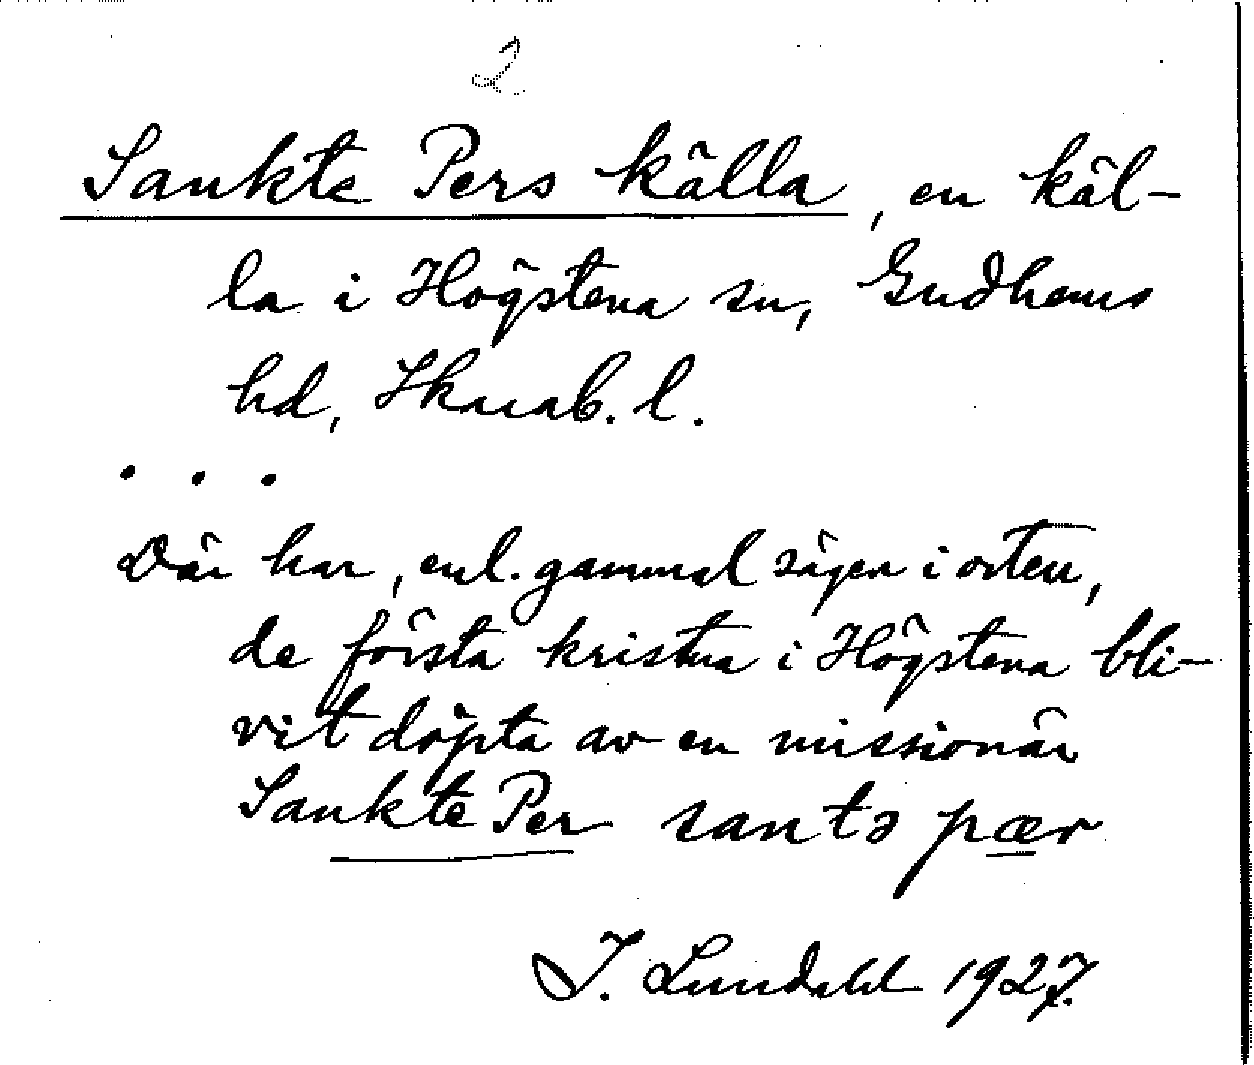 2
Sankte Pers källa, en käl-
la i Högstena sn, Gudhems
hd, Skarab. l.
. . .
Där har, enl. gammal sägen i orten,
de första kristna i Högstena bli-
vit döpta av en missionär
Sankte Per santə pær
I. Lundahl 1927.